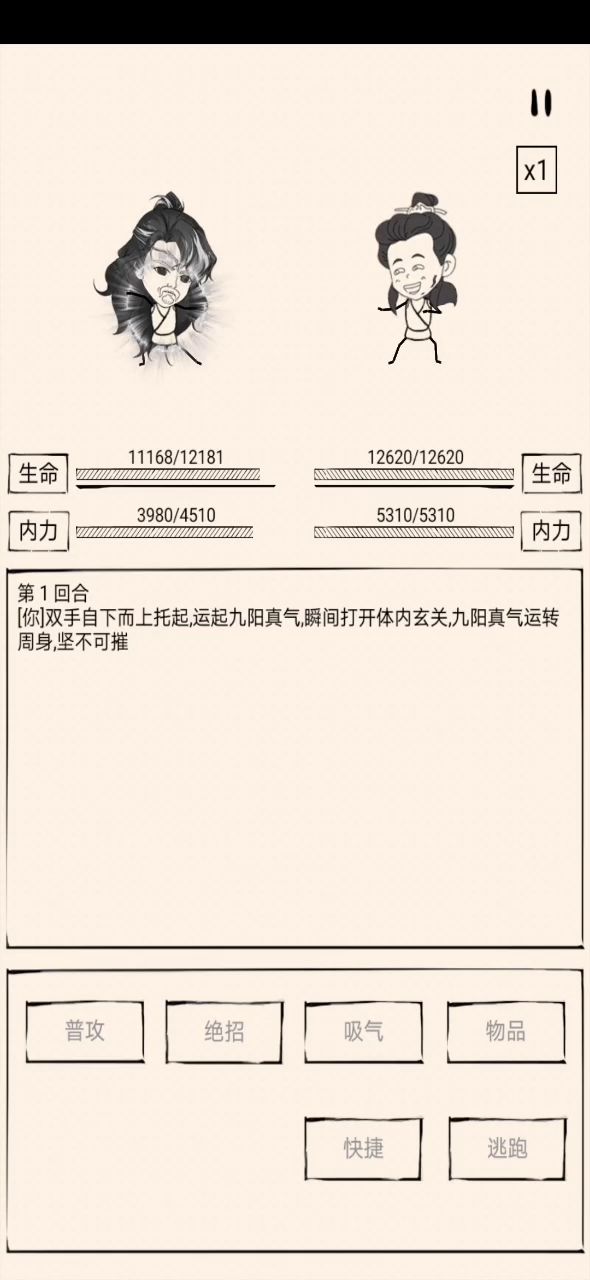 x1
11168/12181
12620/12620
生命
生命
3980/4510
5310/5310
内力
内力
第 1 回合
[你]双手自下而上托起,运起九阳真气,瞬间打开体内玄关,九阳真气运转
周身,坚不可摧
普攻
绝招
吸气
物品
快捷
逃跑